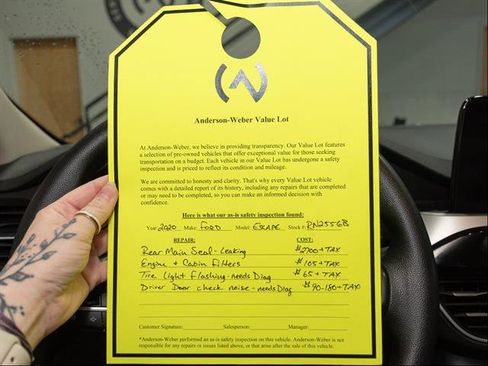 Anderson-Weber Value Lot
At Anderson-Weber, we believe in providing transparency. Our Value Lot features
a selection of pre-owned vehicles that offer exceptional value for those seeking
transportation on a budget. Each vehicle in our Value Lot has undergone a safety
inspection and is priced to reflect its condition and mileage.
We are committed to honesty and clarity. That's why every Value Lot vehicle
comes with a detailed report of its history, including any repairs that are completed
or may need to be completed, so you can make an informed decision with
confidence.
Here is what our as-is safety inspection found:
Year 2020 Make: FORD Model: ESCAPE Stock # PN2556B
REPAIR: COST:
Rear Main Seal - Leaking $2700+TAX
Engine + Cabin Filters $105+TAX
Tire Light Flashing-needs Diag $65+TAX
Driver Door check noise-needs Diag $90-180+TAX
Customer Signature: Salesperson: Manager:
*Anderson-Weber performed an as-is safety inspection on this vehicle. Anderson-Weber is not
responsible for any repairs or issues listed above, or that arise after the sale of this vehicle.